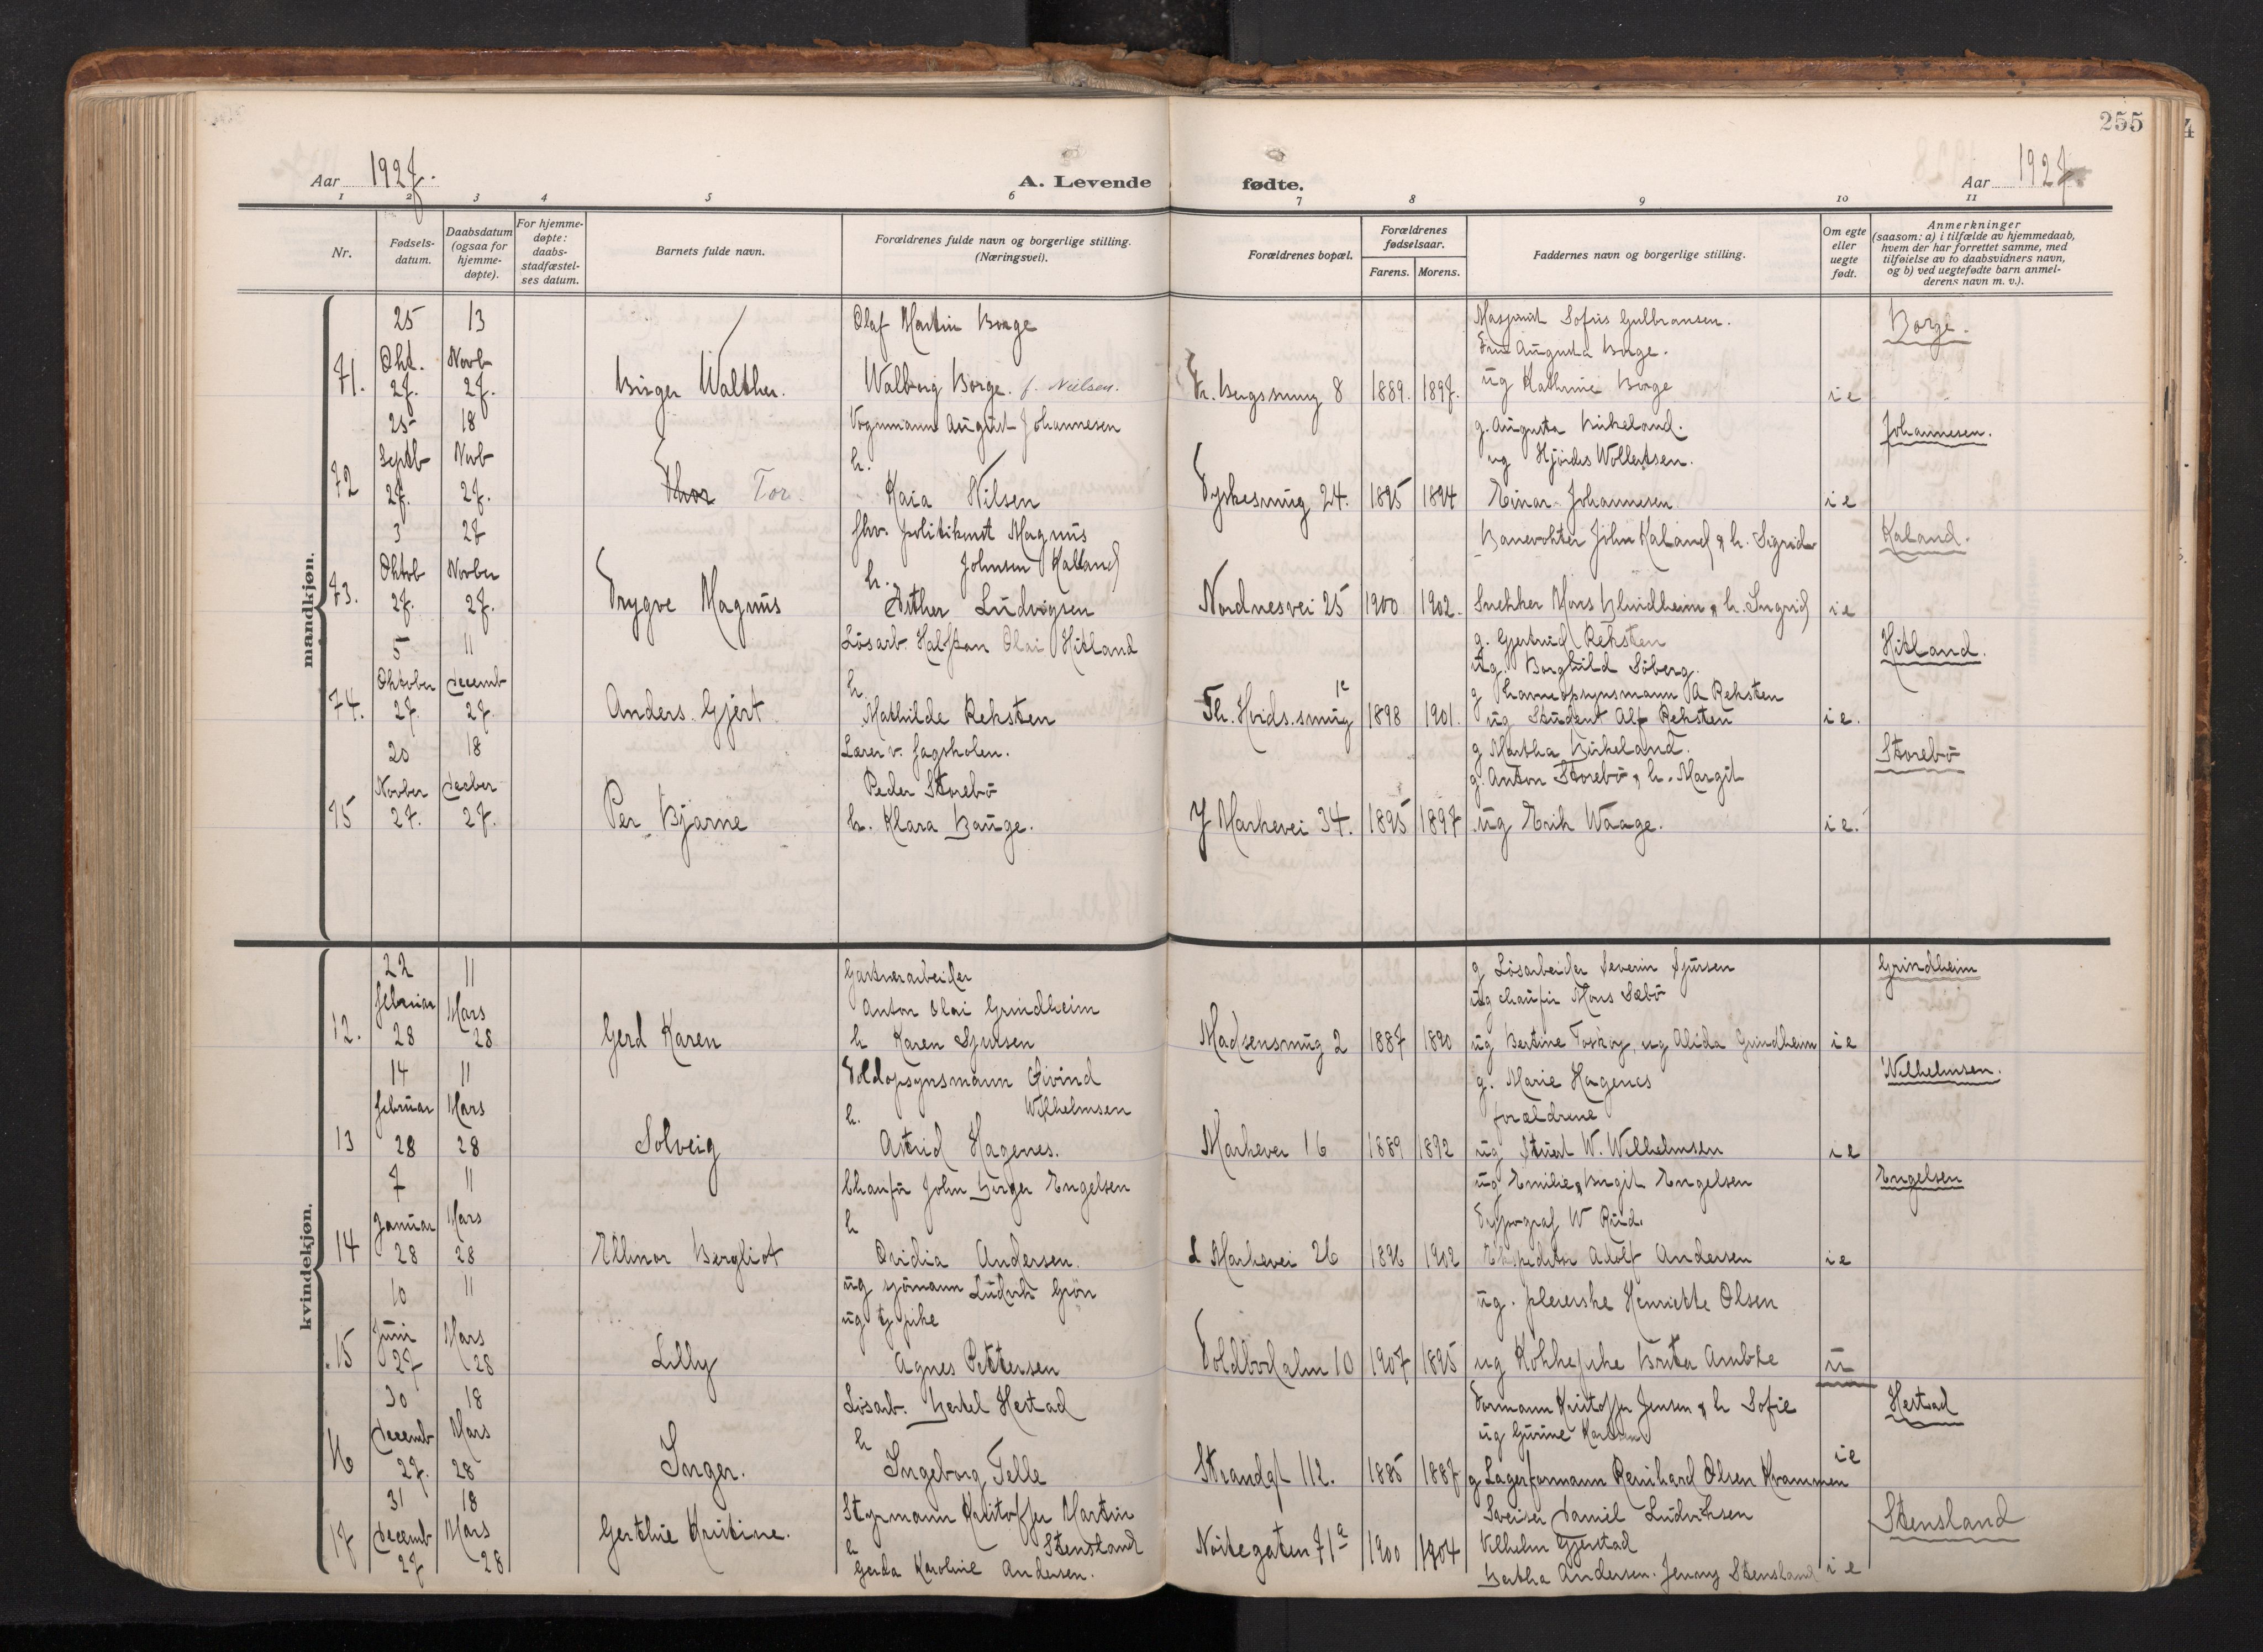 255
Aar 1927.
A. Levende fødte.
Aar 1927
1 2 3 4 5 6 7 8 9 10 11
Nr.
Fødsels-
datum.
Daabsdatum
(ogsaa for
hjemme-
døpte).
For hjemme-
døpte:
daabs-
stadfæstel-
ses datum.
Barnets fulde navn.
Forældrenes fulde navn og borgerlige stilling.
(Næringsvei).
Forældrenes bopæl.
Forældrenes
fødselsaar.
Farens. Morens.
Faddernes navn og borgerlige stilling.
Om egte
eller
uegte
født.
Anmerkninger
(saasom: a) i tilfælde av hjemmedaab,
hvem der har forrettet samme, med
tilføielse av to daabsvidners navn,
og b) ved uegtefødte barn anmel-
derens navn m. v.).
mandkjøn.
71.
25
Okt.
27.
13
Novb
27.
Birger Walther.
Olaf Martin Borge
Walborg Borge. f. Nielsen.
8
1889. 1897.
Maskinist Sofus Gulbransen.
Fru Augusta Borge.
ug Kathrine Borge
i e
Borge.
72
25
Septb
27.
18
Novb
27.
Thor Tor.
Vognmann August Johannesen
h.
Kaia Nilsen
Tyskesmug 24.
1895 1894
g. Augusta Birkeland.
ug Hjördis Wollertsen.
Einar Johannesen
i e
Johannesen.
73.
3
Oktob
27.
27
Novber
27.
Trygve Magnus
fhv. politikonst Magnus
Johnsen Kalland
h.
Esther Ludvigsen
Nordnesvei 25
1900 1902.
Banevokter John Kaland & h. Sigrid
Snekker Mons Blindheim & h. Ingrid
i e
Kaland.
74.
5
Oktober
27.
11
decemb
27.
Anders Gjert
Lösarb. Halfdan Olai Hitland
h.
Mathilde Reksten
Th. Hvids.smug 1e
1898 1901.
g. Gjertrud Reksten
ug. Borghild Söberg.
g havneopsynsmann A Reksten
ug Student Alf Reksten
i e.
Hitland.
75
20
Novber
27.
18
decber
27.
Per Bjarne
Lærer v. fagskolen.
Peder Storebö
h. Klara Bauge.
Y Markevei 34.
1895 1897
g Martha Birkeland.
g. Anton Storebö & h. Margit
ug Erik Waage.
i e.
Storebö
kvindekjøn.
12.
22
februar
28
11
Mars
28
Gerd Karen
Gartnerarbeider
Anton Olai Grindheim
h Karen Sjursen
Madsensmug 2
1887 1890
g Lösarbeider Severin Sjursen
ug chauför Mons Sæbö
ug Bertine Toskay, ug Alida Grindheim
i e
Grindheim
13
14
februar
28
11
Mars
28
Solveig
Toldopsynsmann Öivind
Wilhelmsen
h.
Astrid Hagenes.
Markevei 16
1889 1892
g. Marie Hagenes
forældrene
ug Stuert W. Wilhelmsen
i e
Wilhelmsen.
14
7
Januar
28
11
Mars
28
Ellinor Bergliot
Chauför John Birger Engelsen
h
Ovidia Andersen.
L Markevei 26
1896 1902
ug Emilie & Birgit Engelsen
Typograf W Rud.
Ekspeditör Adolf Andersen
i e
Engelsen
15
10
Juni
27
11
Mars
28
Lilly
ug sjömann Ludvik Grön
ug tj pike
Agnes Pettersen
Toldbodalm 10
1907 1895
ug. pleierske Henriette Olsen
ug Kokkepike Brita
u
16
30
decemb
27.
18
Mars
28
Inger.
Lösarb. Bertel Hestad
h
Ingeborg Telle
Strandgt 112.
1885 1887
Formann Kristoffer Jensen & h Sofie
ug Gurine
g Lagerformann Reinhard Olsen Kvammen
i e
Hestad
17
31
decemb
27
18
Mars
28
Gerthie Kristine.
Styrmann Kristoffer Martin
Stensland
h
Gerda Karoline Andersen.
Nöstegaten 71a
1900 1904
Sveiser Daniel Ludviksen
Vilhelm Gjerstad
Bertha Andersen. Jenny Stensland
i e
Stensland